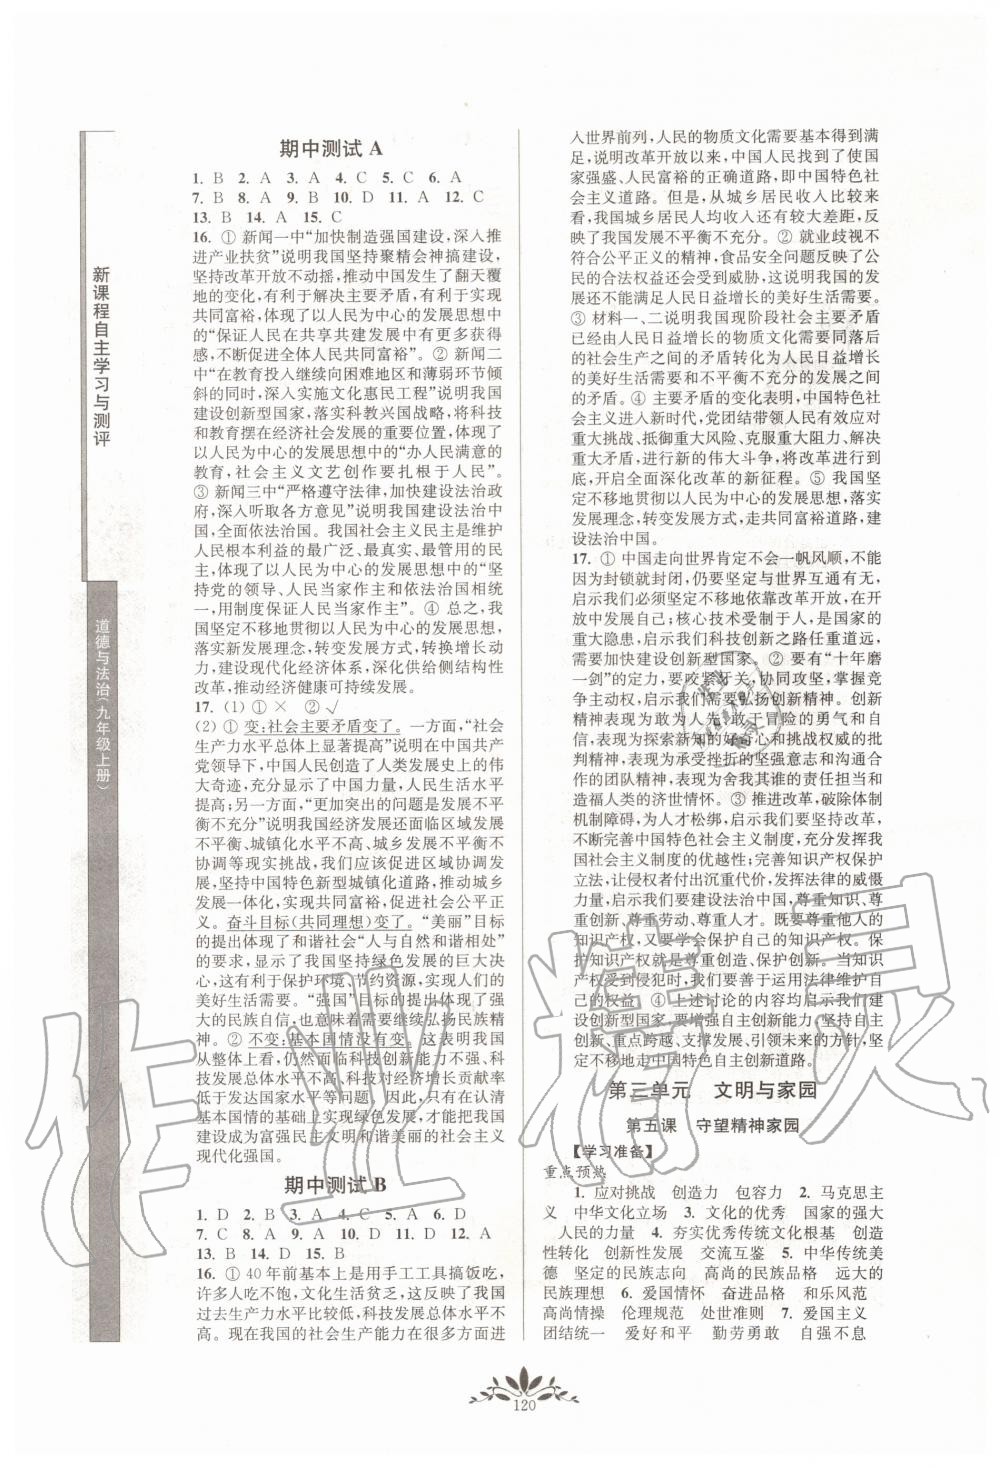 新课程自主学习与测评
道德与法治(九年级上册)
期中测试 A
1. B 2. A 3. A 4. C 5. C 6. A
7. B 8. A 9. B 10. D 11. A 12. C
13. B 14. A 15. C
16. ① 新闻一中“加快制造强国建设,深入推
进产业扶贫”说明我国坚持聚精会神搞建设,
坚持改革开放不动摇,推动中国发生了翻天覆
地的变化,有利于解决主要矛盾,有利于实现
共同富裕,体现了以人民为中心的发展思想中
的“保证人民在共享共建发展中有更多获得
感,不断促进全体人民共同富裕”。② 新闻二
中“在教育投入继续向困难地区和薄弱环节倾
斜的同时,深入实施文化惠民工程”说明我国
建设创新型国家,落实科教兴国战略,将科技
和教育摆在经济社会发展的重要位置,体现了
以人民为中心的发展思想中的“办人民满意的
教育,社会主义文艺创作要扎根于人民”。
③ 新闻三中“严格遵守法律,加快建设法治政
府,深入听取各方意见”说明我国建设法治中
国,全面依法治国。我国社会主义民主是维护
人民根本利益的最广泛、最真实、最管用的民
主,体现了以人民为中心的发展思想中的“坚
持党的领导、人民当家作主、依法治国相统
一,用制度保证人民当家作主”。④ 总之,我
国坚定不移地贯彻以人民为中心的发展思想,
落实新发展理念,转变发展方式,转换增长动
力,建设现代化经济体系,深化供给侧结构性
改革,推动经济健康可持续发展。
17. (1) ① × ② √
(2) ① 变:社会主要矛盾变了。一方面,“社会
生产力水平总体上显著提高”说明在中国共产
党领导下,中国人民创造了人类发展史上的伟
大奇迹,充分显示了中国力量,人民生活水平
提高;另一方面,“更加突出的问题是发展不平
衡不充分”说明我国经济发展还面临区域发展
不平衡、城镇化水平不高、城乡发展不平衡不
协调等现实挑战,我们应该促进区域协调发
展,坚持中国特色新型城镇化道路,推动城乡
发展一体化,实现共同富裕,促进社会公平正
义。奋斗目标(共同理想)变了。“美丽”目标
的提出体现了和谐社会“人与自然和谐相处”
的要求,显示了我国坚持绿色发展的决心和信
心,这有利于保护环境、节约资源,实现人们的
美好生活需要。“强国”目标的提出体现了强
大的民族自信,也意味着需要继续弘扬民族精
神。② 不变:基本国情没有变。这表明我国
从整体上看,仍然面临科技创新能力不强、科
技总体水平不高、科技对经济增长贡献率
低于发达国家水平等问题。因此,只有在认清
基本国情的基础上实现绿色发展,才能把我国
建设成为富强民主文明和谐美丽的社会主义
现代化强国。
期中测试 B
1. D 2. B 3. A 4. C 5. A 6. D
7. C 8. A 9. A 10. D 11. D 12. A
13. B 14. D 15. B
16. ① 40 年前基本上是用手工工具搞饭吃,
许多人吃不饱,文化生活贫乏,这反映了我国
过去生产力水平比较低,科技发展总体水平不
高。现在我国的社会生产能力在很多方面进
入世界前列,人民的物质文化需要基本得到满
足,说明改革开放以来,中国人民找到了使国
家强盛、人民富裕的正确道路,即中国特色社
会主义道路。但是,从城乡居民收入比较来
看,我国城乡居民人均收入有较大差距,反映
了我国发展不平衡不充分。② 就业歧视不
符合公平正义的精神,食品安全问题反映了公
民的合法权益还会受到威胁,这说明我国的发
展还不能满足人民日益增长的美好生活需要。
③ 材料一、二说明我国现阶段社会主要矛盾
已经由人民日益增长的物质文化需要同落后
的社会生产之间的矛盾转化为人民日益增长
的美好生活需要和不平衡不充分的发展之间
的矛盾。④ 主要矛盾的变化表明,中国特色
社会主义进入新时代,党团结带领人民有效应对
重大挑战、抵御重大风险、克服重大阻力、解决
重大矛盾,进行新的伟大斗争,将改革进行到
底,开启全面深化改革的新征程。⑤ 我国坚
定不移地贯彻以人民为中心的发展思想,落实
发展理念,转变发展方式,走共同富裕道路,建
设法治中国。
17. ① 中国走向世界肯定不会一帆风顺,不能
因为封锁就封闭,仍要坚定与世界互通互动,
启示我们必须坚定不移地依靠改革开放,在开
放中发展自己;核心技术受制于人,是国家的
重大隐患,启示我们科技创新之路任重道远,
需要加快建设创新型国家。② 要有“十年磨
一剑”的定力,要咬紧牙关,协同攻坚,掌握竞
争主动权,启示我们需要弘扬创新精神。创新
精神表现为敢为人先,敢于冒险的勇气和自
信,表现为探索新知的好奇心和挑战权威的批
判精神,表现为承受挫折的坚强意志和沟通合
作的团队精神,表现为舍我其谁的责任担当和
造福人类的济世情怀。③ 推进改革,破除体制
机制障碍,为人才松绑,启示我们要坚持改革,
不断完善中国特色社会主义制度,充分发挥我
国社会主义制度的优越性;完善知识产权保护
立法,让侵权者付出沉重代价,发挥法律的威慑
力量,启示我们要建设法治中国,尊重知识、尊
重创新,尊重劳动、尊重人才。既要尊重他人的
知识产权,又要学会保护自己的知识产权。保
护知识产权就是尊重创新、保护创新。当知识
产权受到侵犯时,我们要善于运用法律维护自
己的权益。④ 上述讨论的内容启示我们要建
设创新型国家,要增强自主创新能力,坚持自主
创新、重点跨越、支撑发展、引领未来的方针,坚
定不移地走中国特色自主创新道路。
第三单元 文明与家园
第五课 守望精神家园
【学习准备】
重点预热
1. 应对挑战 创造力 包容力 2. 马克思主
义 中华文化立场 3. 文化的优秀 国家的强大
人民的力量 4. 夯实优秀传统文化根基 创造
性转化 创新性发展 交流互鉴 5. 中华传统美
德 坚定的民族志向 高尚的民族品格 远大的
民族理想 6. 爱国情怀 奋进品格 和乐风范
高尚情操 伦理规范 处世准则 7. 爱国主义
团结统一 爱好和平 勤劳勇敢 自强不息
120
作业精灵